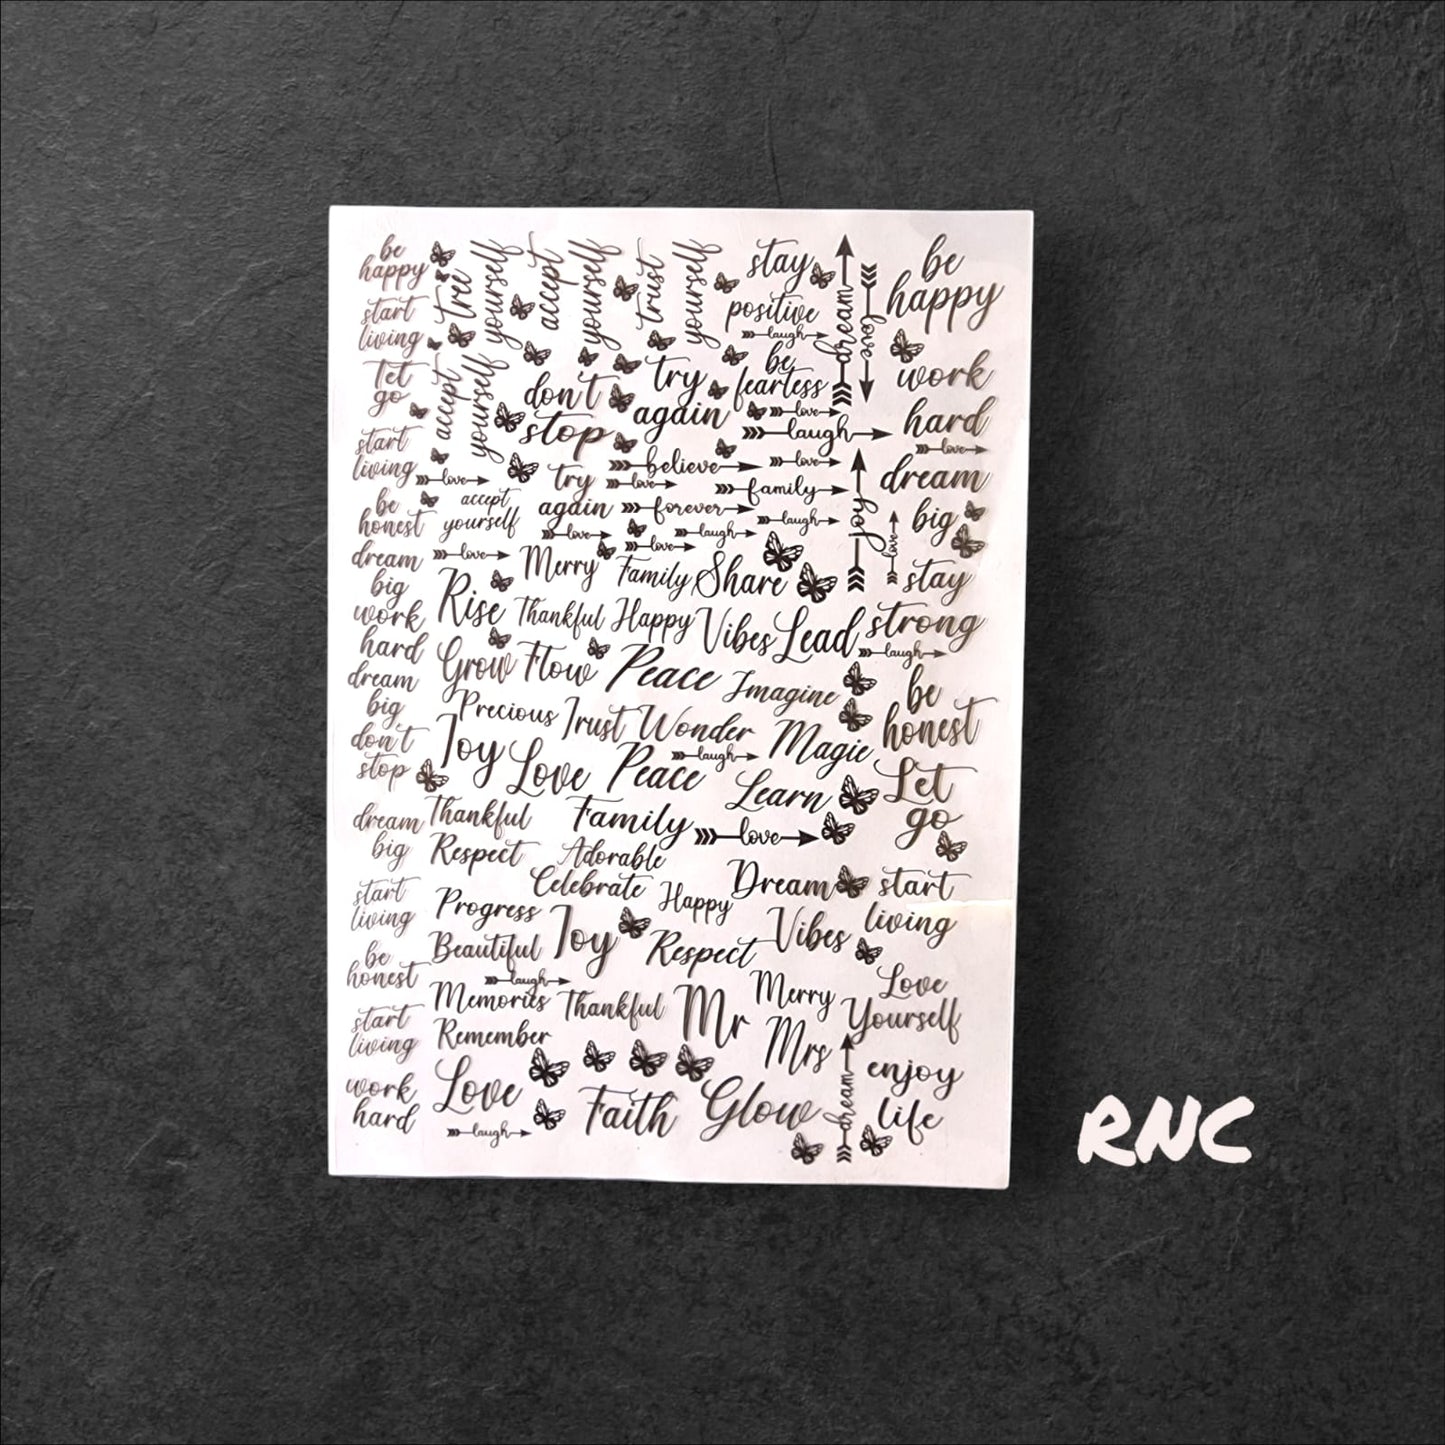 be
happy
start
living
Let
go
start
living
be
honest
dream
big
work
hard
dream
big
don't
stop
dream
big
start
living
be
honest
start
living
work
hard
true
yourself
accept
yourself
trust
yourself
accept
yourself
don't
stop
try
again
stay
positive
laugh
be
fearless
love
laugh
dream
love
believe
love
love
love
try
again
family
forever
laugh
accept
yourself
love
laugh
love
love
joy
love
Merry
Family
Share
Rise
Thankful
Happy
Vibes
Lead
laugh
Grow
Flow
Peace
Imagine
Precious
Trust
Wonder
Magic
laugh
Joy
Love
Peace
Learn
Thankful
Family
love
Respect
Adorable
Celebrate
Happy
Dream
Progress
Joy
Vibes
Beautiful
Respect
laugh
Memories
Thankful
Mr
Merry
Remember
Mrs
Love
Faith
Glow
dream
laugh
be
happy
work
hard
love
dream
big
stay
strong
be
honest
Let
go
start
living
Love
Yourself
enjoy
life
RNC